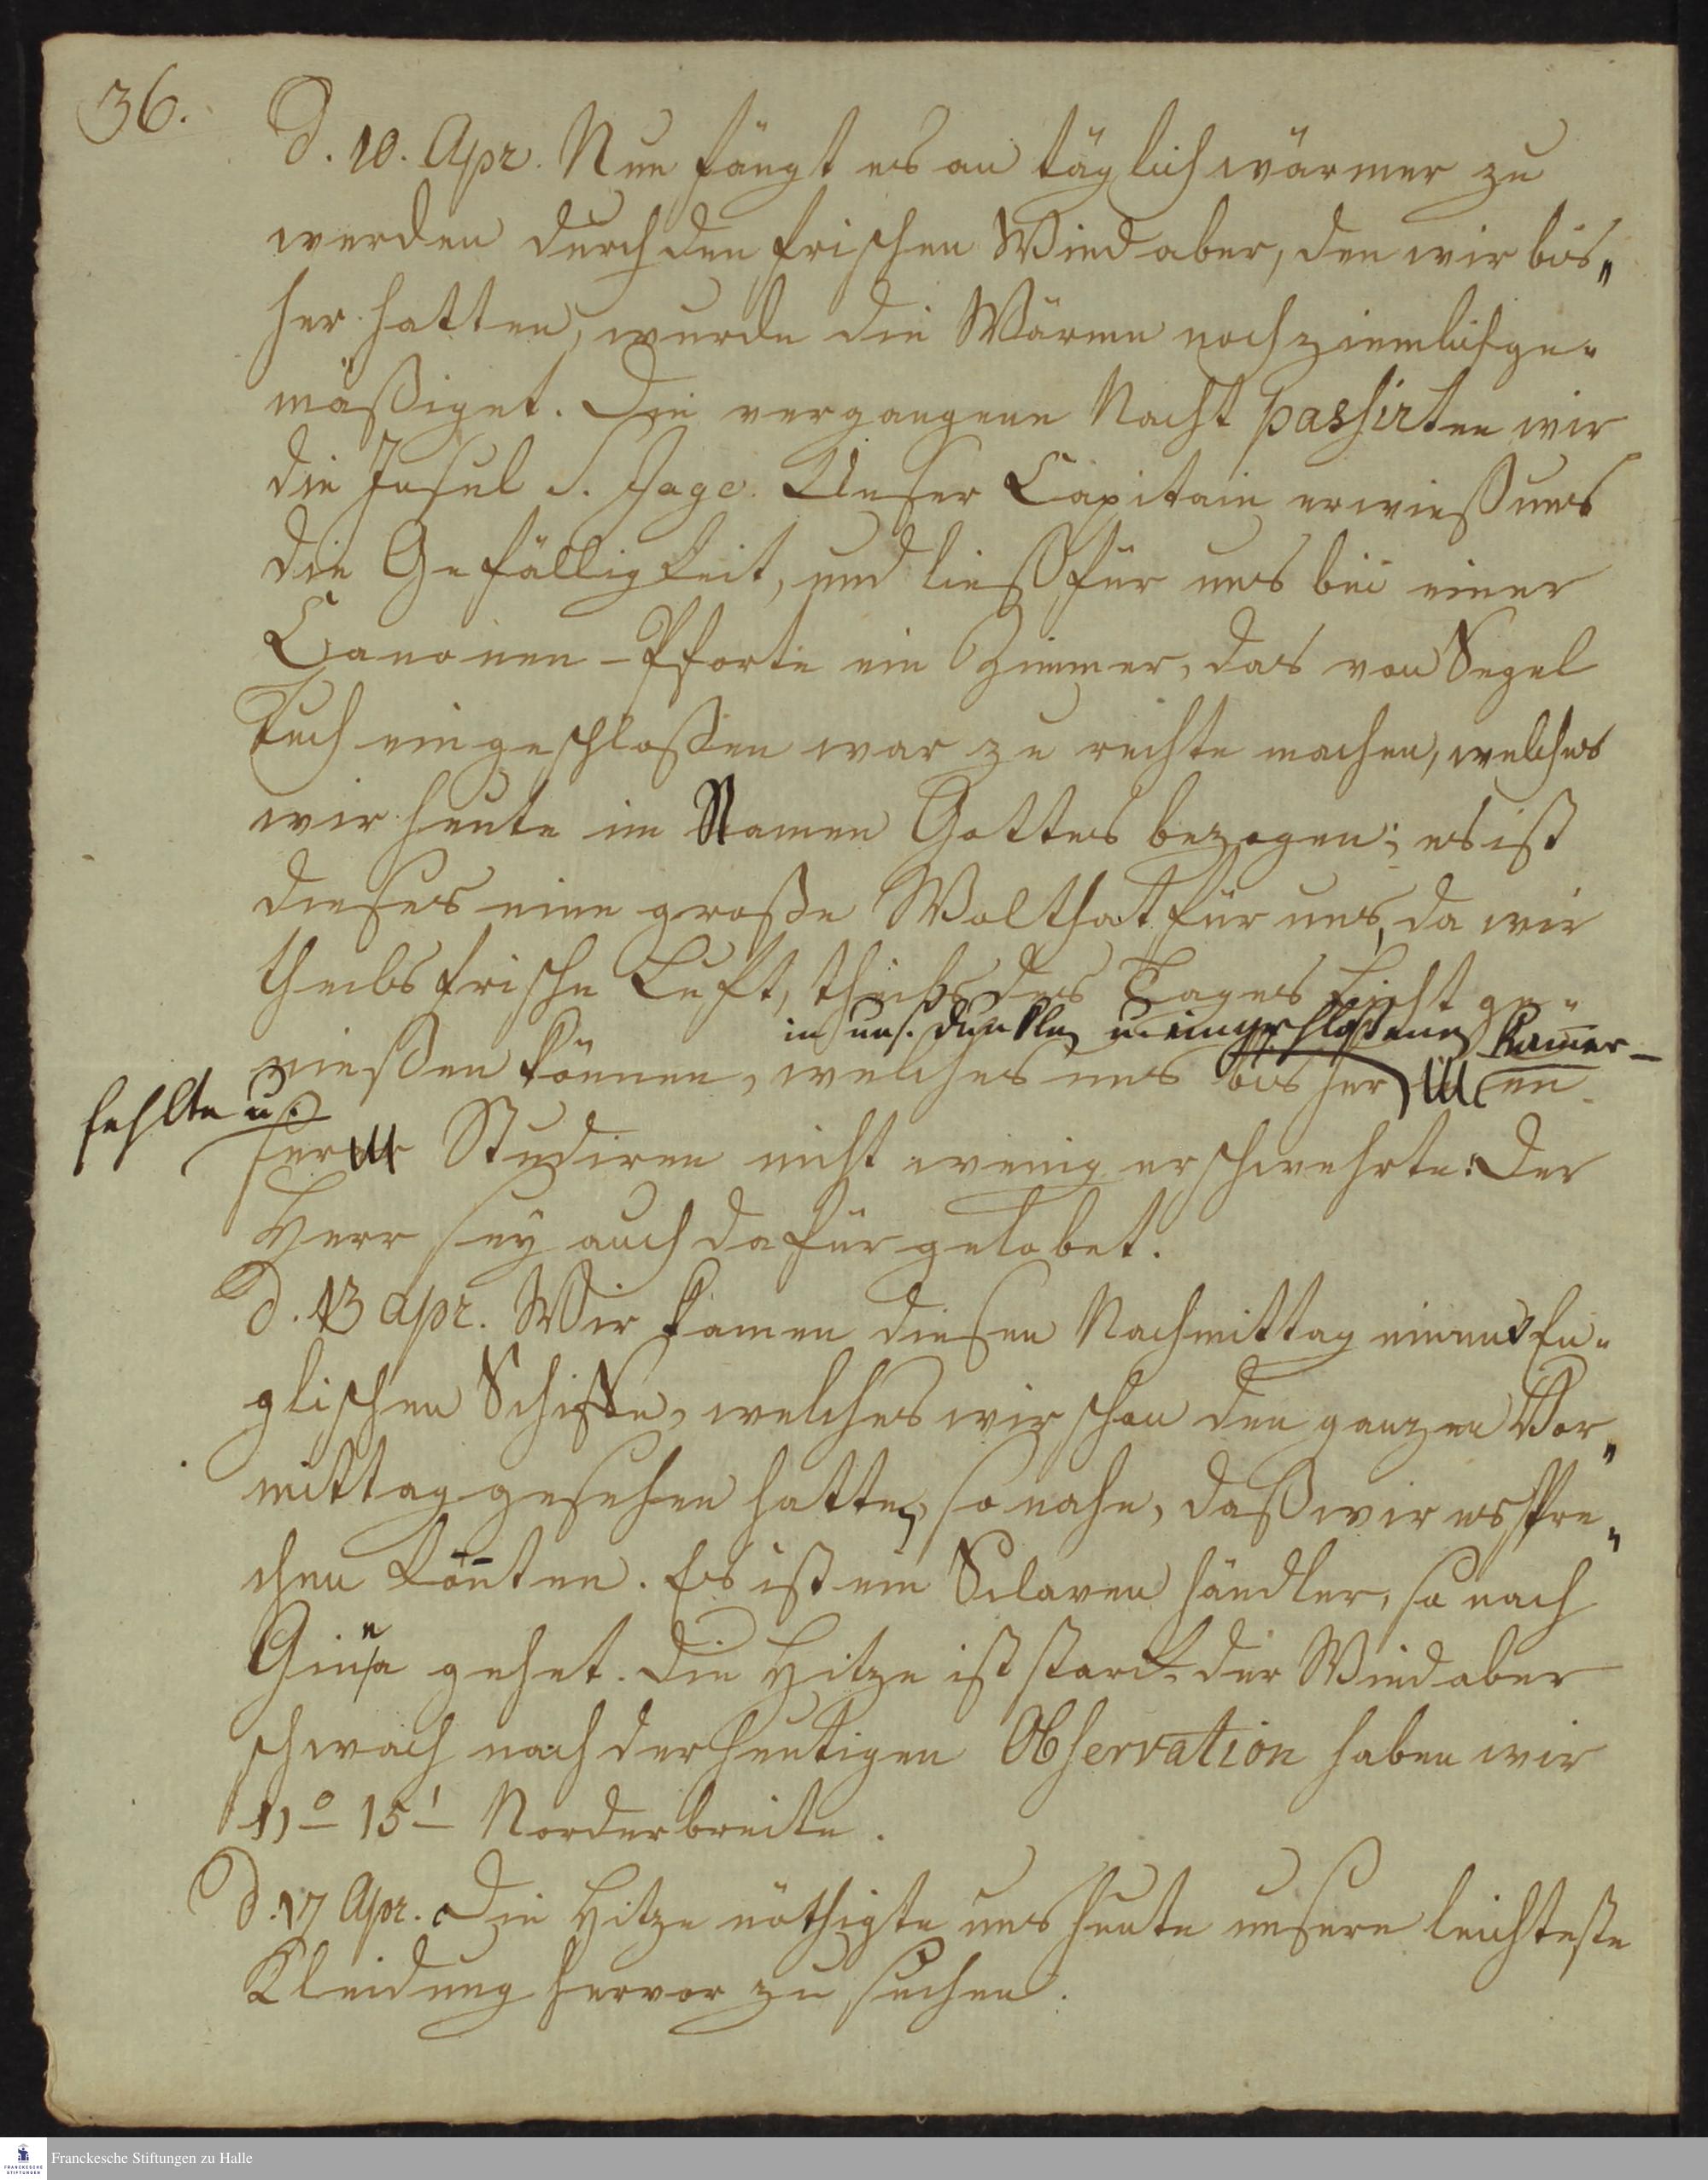 36.
D. 10. Apr. Nun fängt es an täglich wärmer zu
werden durch den frischen Wind aber, den wir bis„
her hatten, wurde die Wärme noch ziemlich ge-
mäßiget. Die vergangene Nacht passirten wir
die Insul S. Jago. Unser Capitain erwieß uns
die Gefälligkeit, und ließ für uns bei einer
Canonen-Pforte ein Zimmer, das von Segel
Tuch eingeschloßen war zu rechte machen, welches
wir heute im Namen Gottes bezogen; es ist
dieses eine große Wolthat für uns, da wir
theils frische Luft, theils des Tages Licht ge-
in uns. dunklen u. eingeschloßenen Kam̄er-
nießen können, welches uns bisher en
fehlte u.
ser Studiren nicht wenig erschwehrte: Der
Herr sey auch dafür gelobet.
D. 13 apr. Wir kamen diesen Nachmittag einem En-
glischen Schiffe, welches wir schon den ganzen Vor„
mittag gesehen hatten, so nahe, daß wir es spre„
chen kön̄ten. Es ist ein Sclaven händler, so nach
Ginea gehet. Die Hitze ist starck der Wind aber
schwach nach der heutigen Observation haben wir
11° 15' Norderbreite.
D. 17 Apr. Die Hitze nöthigte uns heute unsere leichteste
Kleidung hervor zu suchen.
Franckesche Stiftungen zu Halle
FRANCKESCHE
STIFTUNGEN